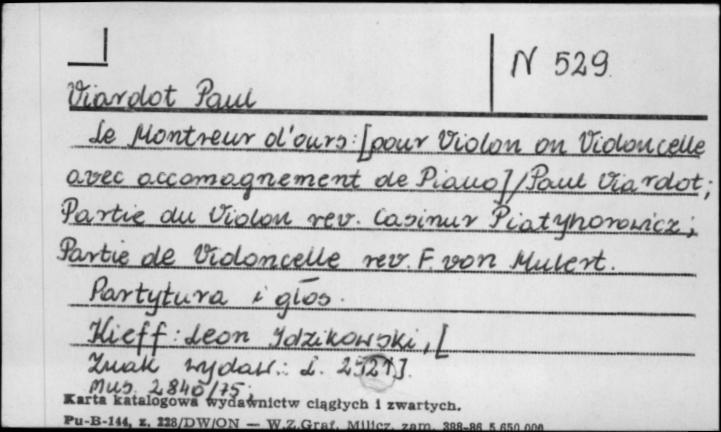 N 529
Viardot Paul
Le Montreur d'ours: [pour Violon on Violoncelle
avec accomagnement de Piano] / Paul Viardot;
Partie du Violon rev. Casimir Piatyhorowicz;
Partie de Violoncelle rev. F. von Mulert.
Partytura i głos.
Kieff: Leon Idzikowski, [
Znak wydaw.: L. 2521].
Mus. 2840/75;
Karta katalogowa wydawnictw ciągłych i zwartych.
Pu-B-144, z. 228/DW/ON — W.Z.Graf. Milicz, zam. 388-86 5.650.000